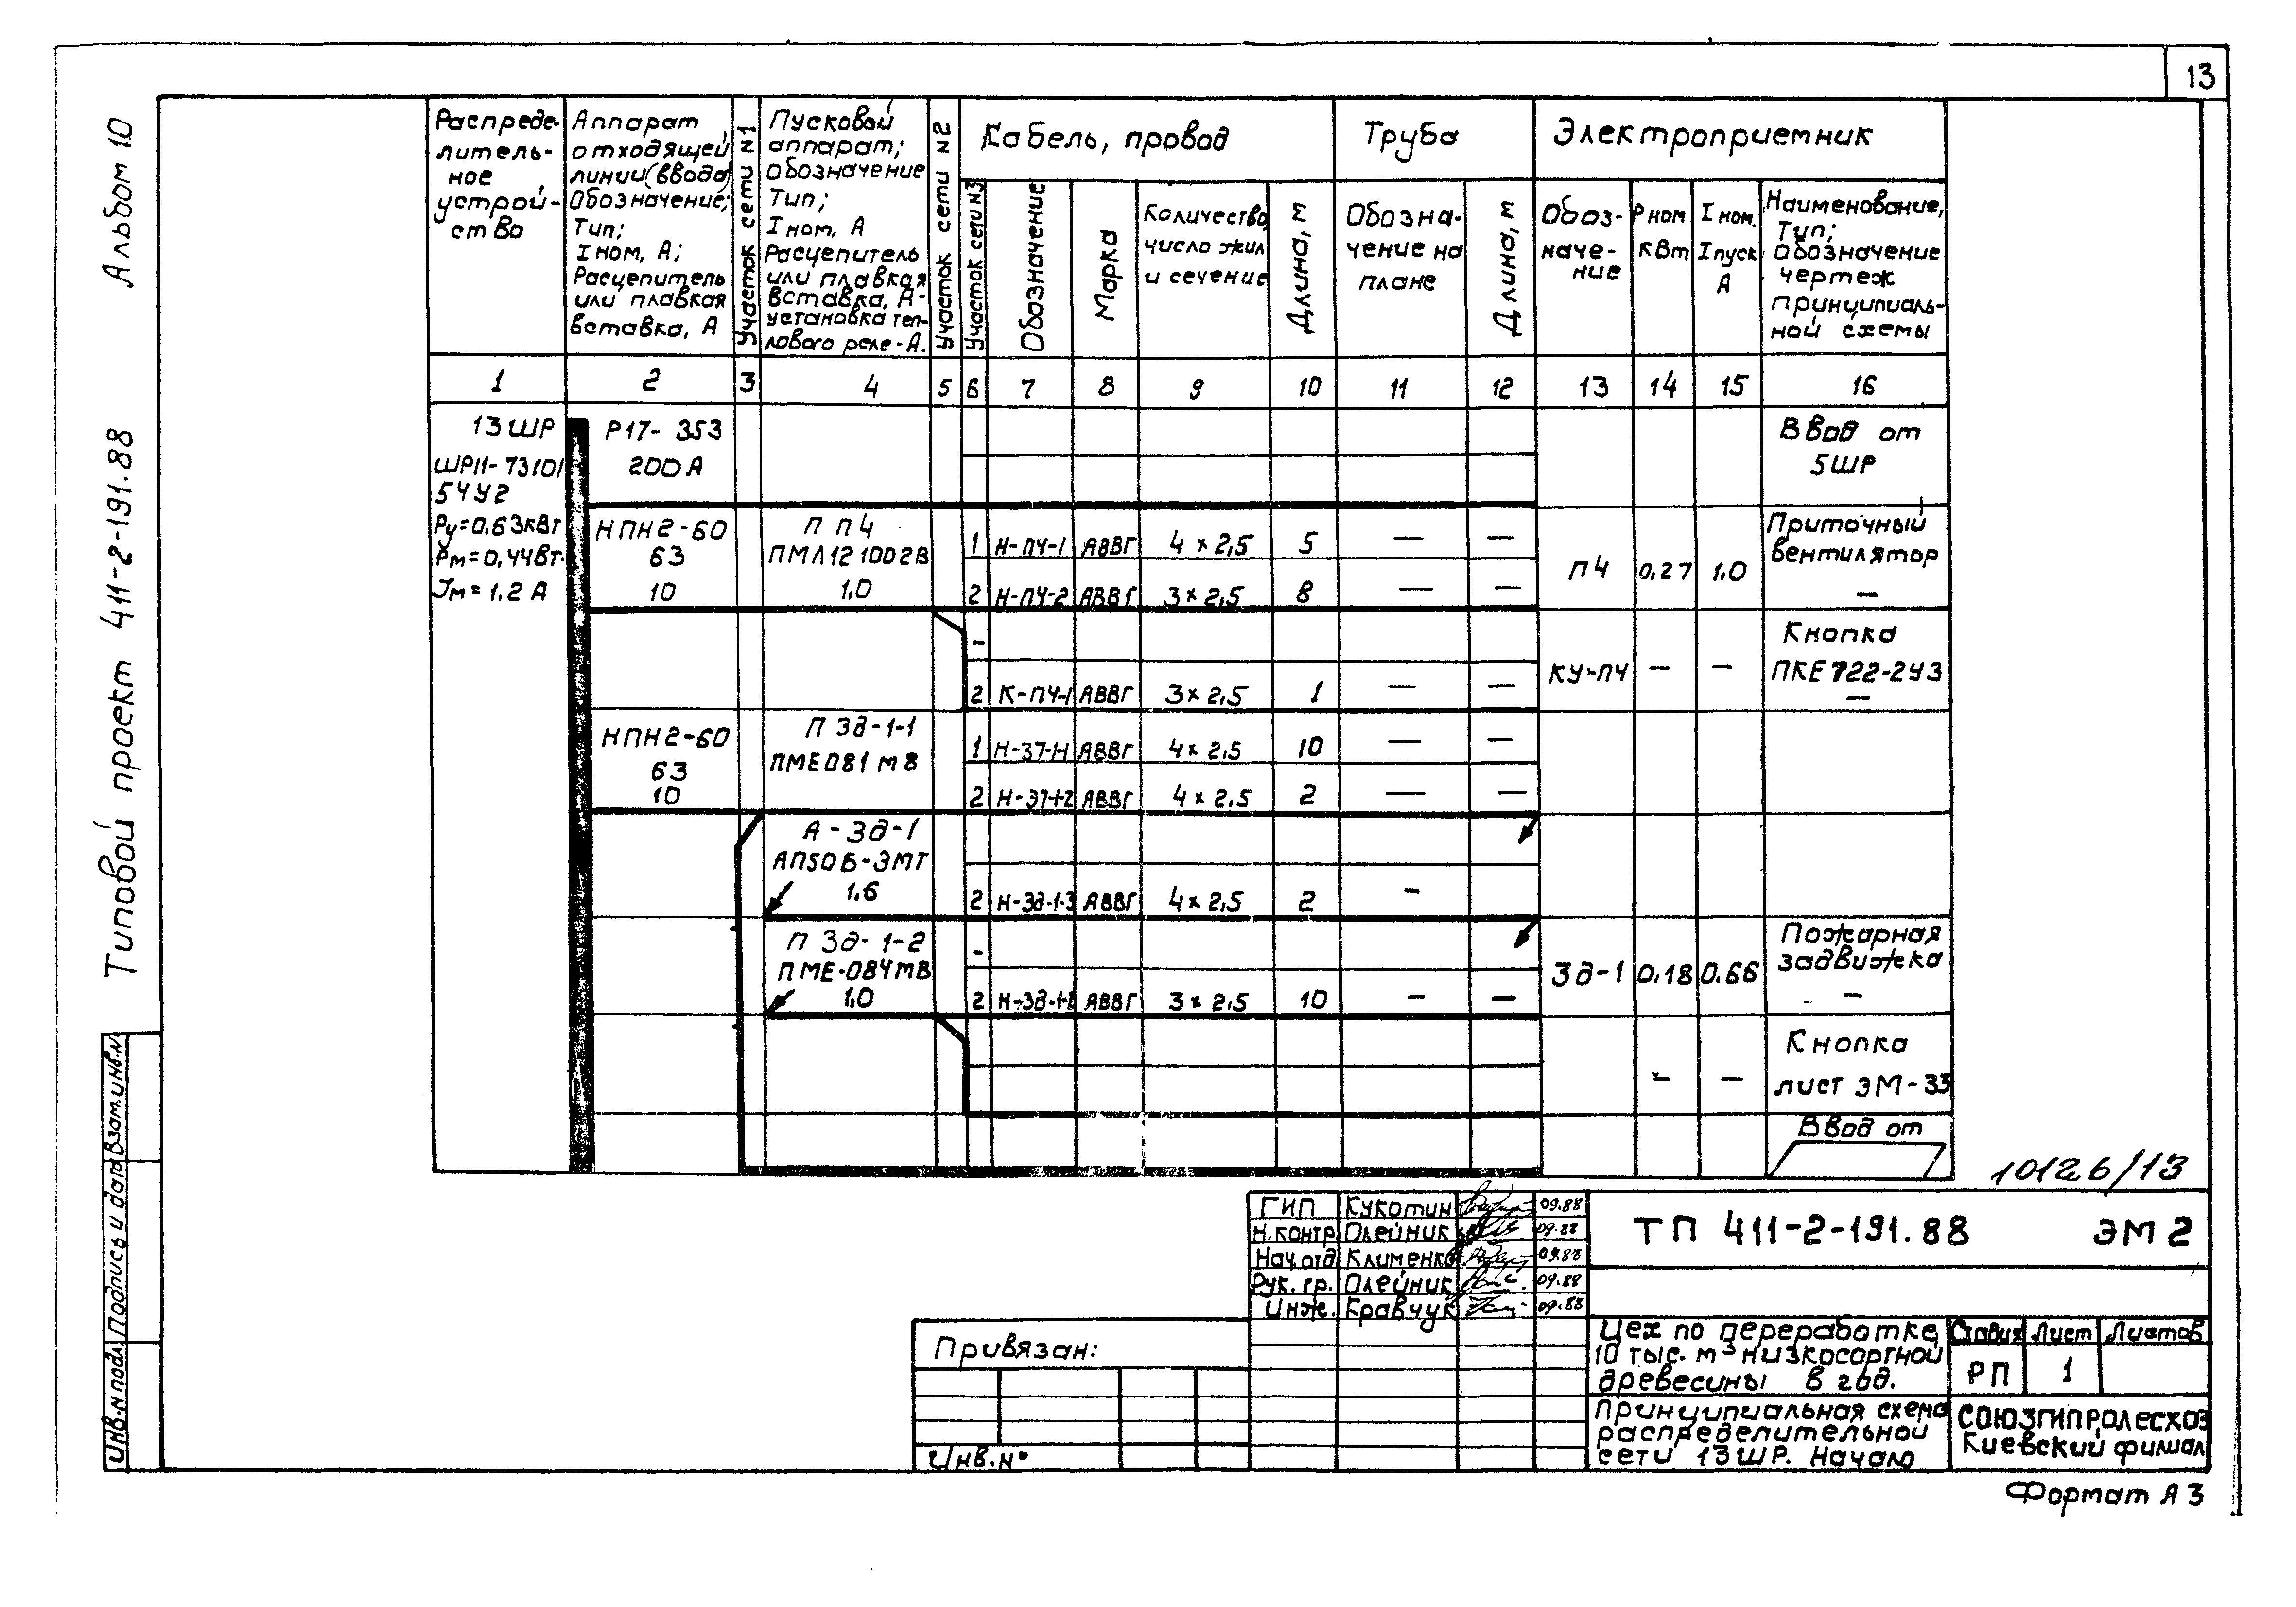 13
Альбом 10
Типовой проект 411-2-191.88
Инв.N подл. Подпись и дата Взам.инв.N
Распреде-
литель-
ное
устрой-
ство
Аппарат
отходящей
линии (ввода)
Обозначение;
Тип;
Iном, А;
Расцепитель
или плавкая
вставка, А
Участок сети N1
Пусковой
аппарат;
обозначение
Тип;
Iном, А
Расцепитель
или плавкая
вставка, А-
установка теп-
лового реле-А.
Участок сети N2
Кабель, провод
Участок сети N3
Обозначение
Марка
Количество,
число жил
и сечение
Длина, м
Труба
Обозна-
чение на
плане
Длина, м
Электроприемник
Обоз-
наче-
ние
Рном
кВт
Iном.
Iпуск
А
Наименование,
Тип;
обозначение
чертеж
принципиаль-
ной схемы
1 2 3 4 5 6 7 8 9 10 11 12 13 14 15 16
13ШР
ШР11-73101
54У2
Ру=0,63кВт
Рм=0,44Вт.
Iм=1.2 А
Р17-353
200А
Ввод от
5ШР
НПН2-60
63
10
П П4
ПМЛ121002В
1,0
1 Н-П4-1 АВВГ 4×2,5 5 — —
2 Н-П4-2 АВВГ 3×2,5 8 — —
П4 0,27 1,0
Приточный
вентилятор
—
-
2 К-П4-1 АВВГ 3×2,5 1 — —
КУ-П4 — —
Кнопка
ПКЕ722-2У3
—
НПН2-60
63
10
П Зд-1-1
ПМЕ081МВ
1 АВВГ 4×2,5 10 — —
2 АВВГ 4×2,5 2 — —
А-Зд-1
АП50Б-3МТ
1,6
2 Н-Зд-1-3 АВВГ 4×2,5 2 -
П Зд-1-2
ПМЕ-084МВ
1,0
-
2 АВВГ 3×2,5 10 — —
Зд-1 0,18 0,66
Пожарная
задвижка
—
— —
Кнопка
лист ЭМ-33
Ввод от
10126/13
ГИП Кукотин 09.88
Н.контр Олейник 09.88
Нач.отд Клименко 09.88
Рук.гр. Олейник 09.88
Инж. Кравчук 09.88
ТП 411-2-191.88 ЭМ2
Цех по переработке
10 тыс. м³ низкосортной
древесины в год.
Стадия Лист Листов
РП 1
Принципиальная схема
распределительной
сети 13ШР. Начало
СОЮЗГИПРОЛЕСХОЗ
Киевский филиал
Привязан:
Инв.N°
Формат А3